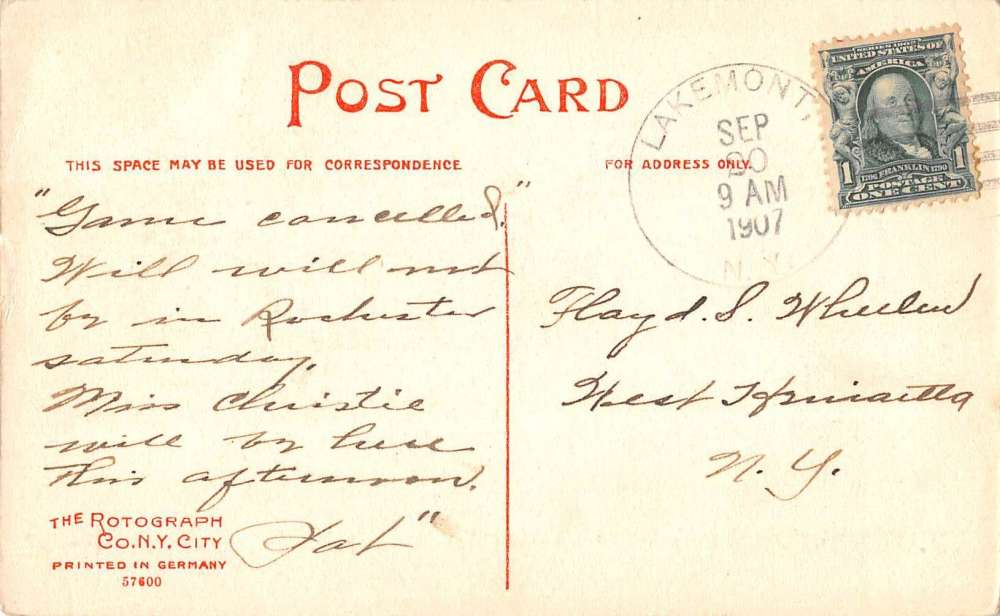 POST CARD
THIS SPACE MAY BE USED FOR CORRESPONDENCE
FOR ADDRESS ONLY.
LAKEMONT,
SEP
30
9 AM
1907
N.Y.
SERIES 1902
UNITED STATES OF
AMERICA
1706 FRANKLIN 1790
1 POSTAGE 1
ONE CENT
"Game cancelled."
Will will not
by in Rochester
saturday,
Miss Christie
will by here
this afternoon.
"
Floyd. S. Wheeler
West Henrietta
N. Y.
THE ROTOGRAPH
CO. N.Y. CITY
PRINTED IN GERMANY
57600